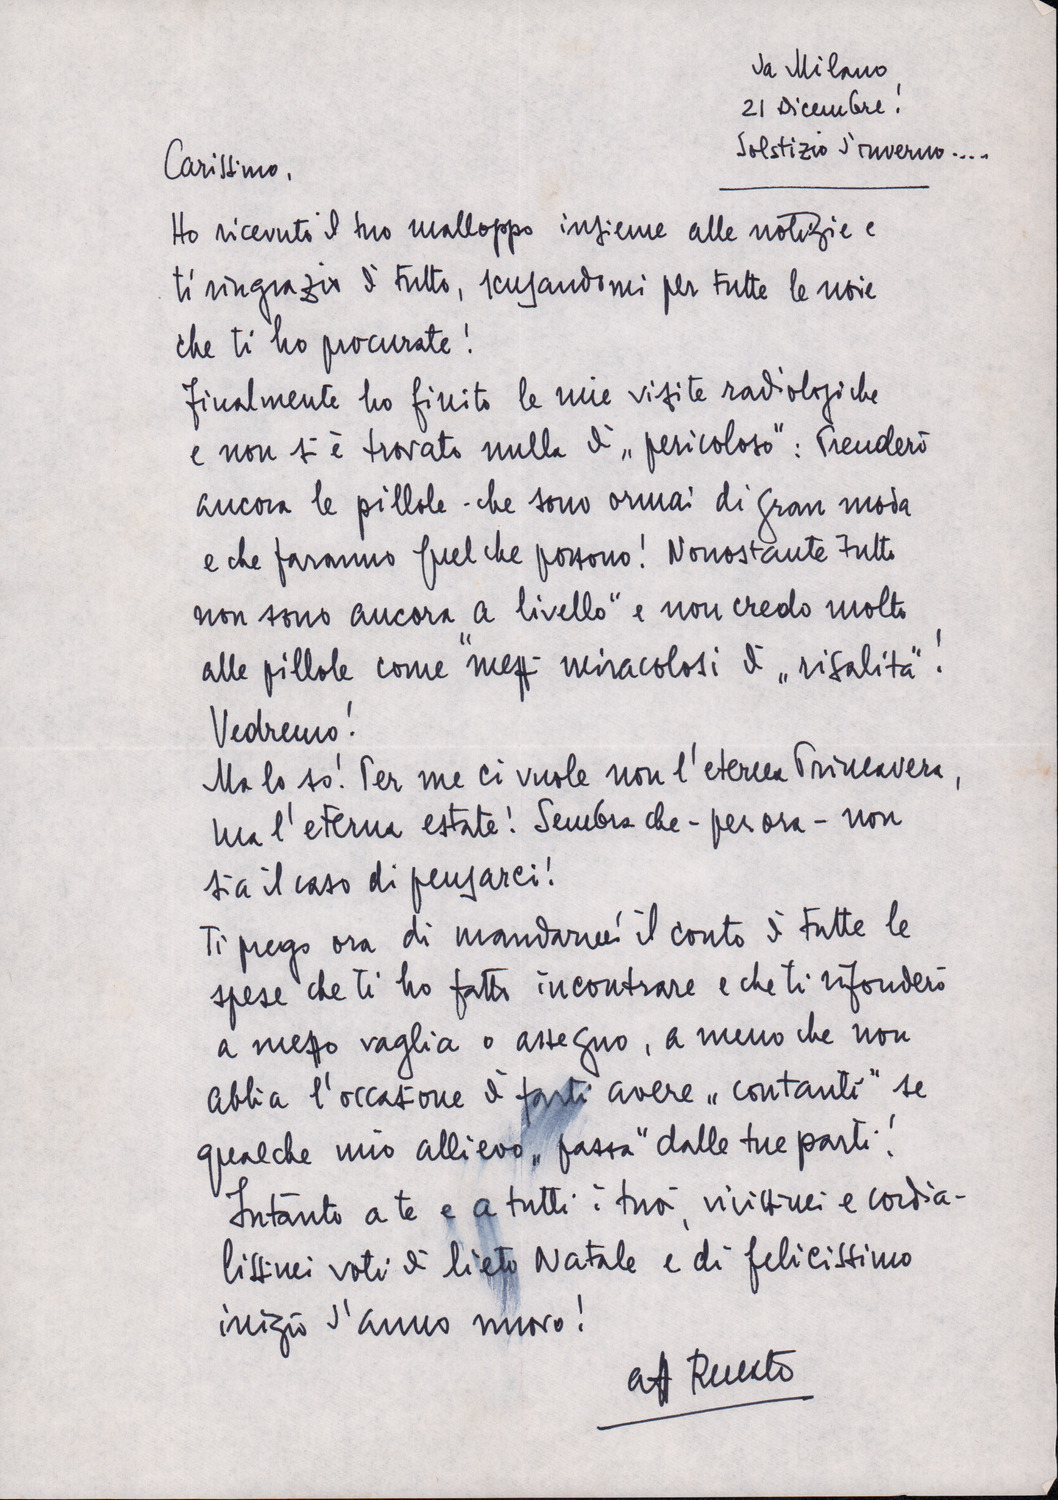 Da Milano
21 Dicembre!
Solstizio d'inverno....
Carissimo,
Ho ricevuto il tuo malloppo insieme alle notizie e
ti ringrazio di tutto, scusandomi per tutte le noie
che ti ho procurate!
Finalmente ho finito le mie visite radiologiche
e non si è trovato nulla di „pericoloso": Prenderò
ancora le pillole - che sono ormai di gran moda
e che faranno quel che possono! Nonostante tutto
non sono ancora „a livello" e non credo molto
alle pillole come mezzi miracolosi di „risalita"!
Vedremo!
Ma lo so! Per me ci vuole non l'eterna Primavera,
ma l'eterna estate! Sembra che - per ora - non
sia il caso di pensarci!
Ti prego ora di mandarmi il conto di tutte le
spese che ti ho fatto incontrare e che ti rifonderò
a mezzo vaglia o assegno, a meno che non
abbia l'occasione di farti avere „contanti" se
qualche mio allievo „passa" dalle tue parti!
Intanto a te e a tutti i tuoi, vivissimi e cordia-
lissimi voti di lieto Natale e di felicissimo
inizio d'anno nuovo!
aff